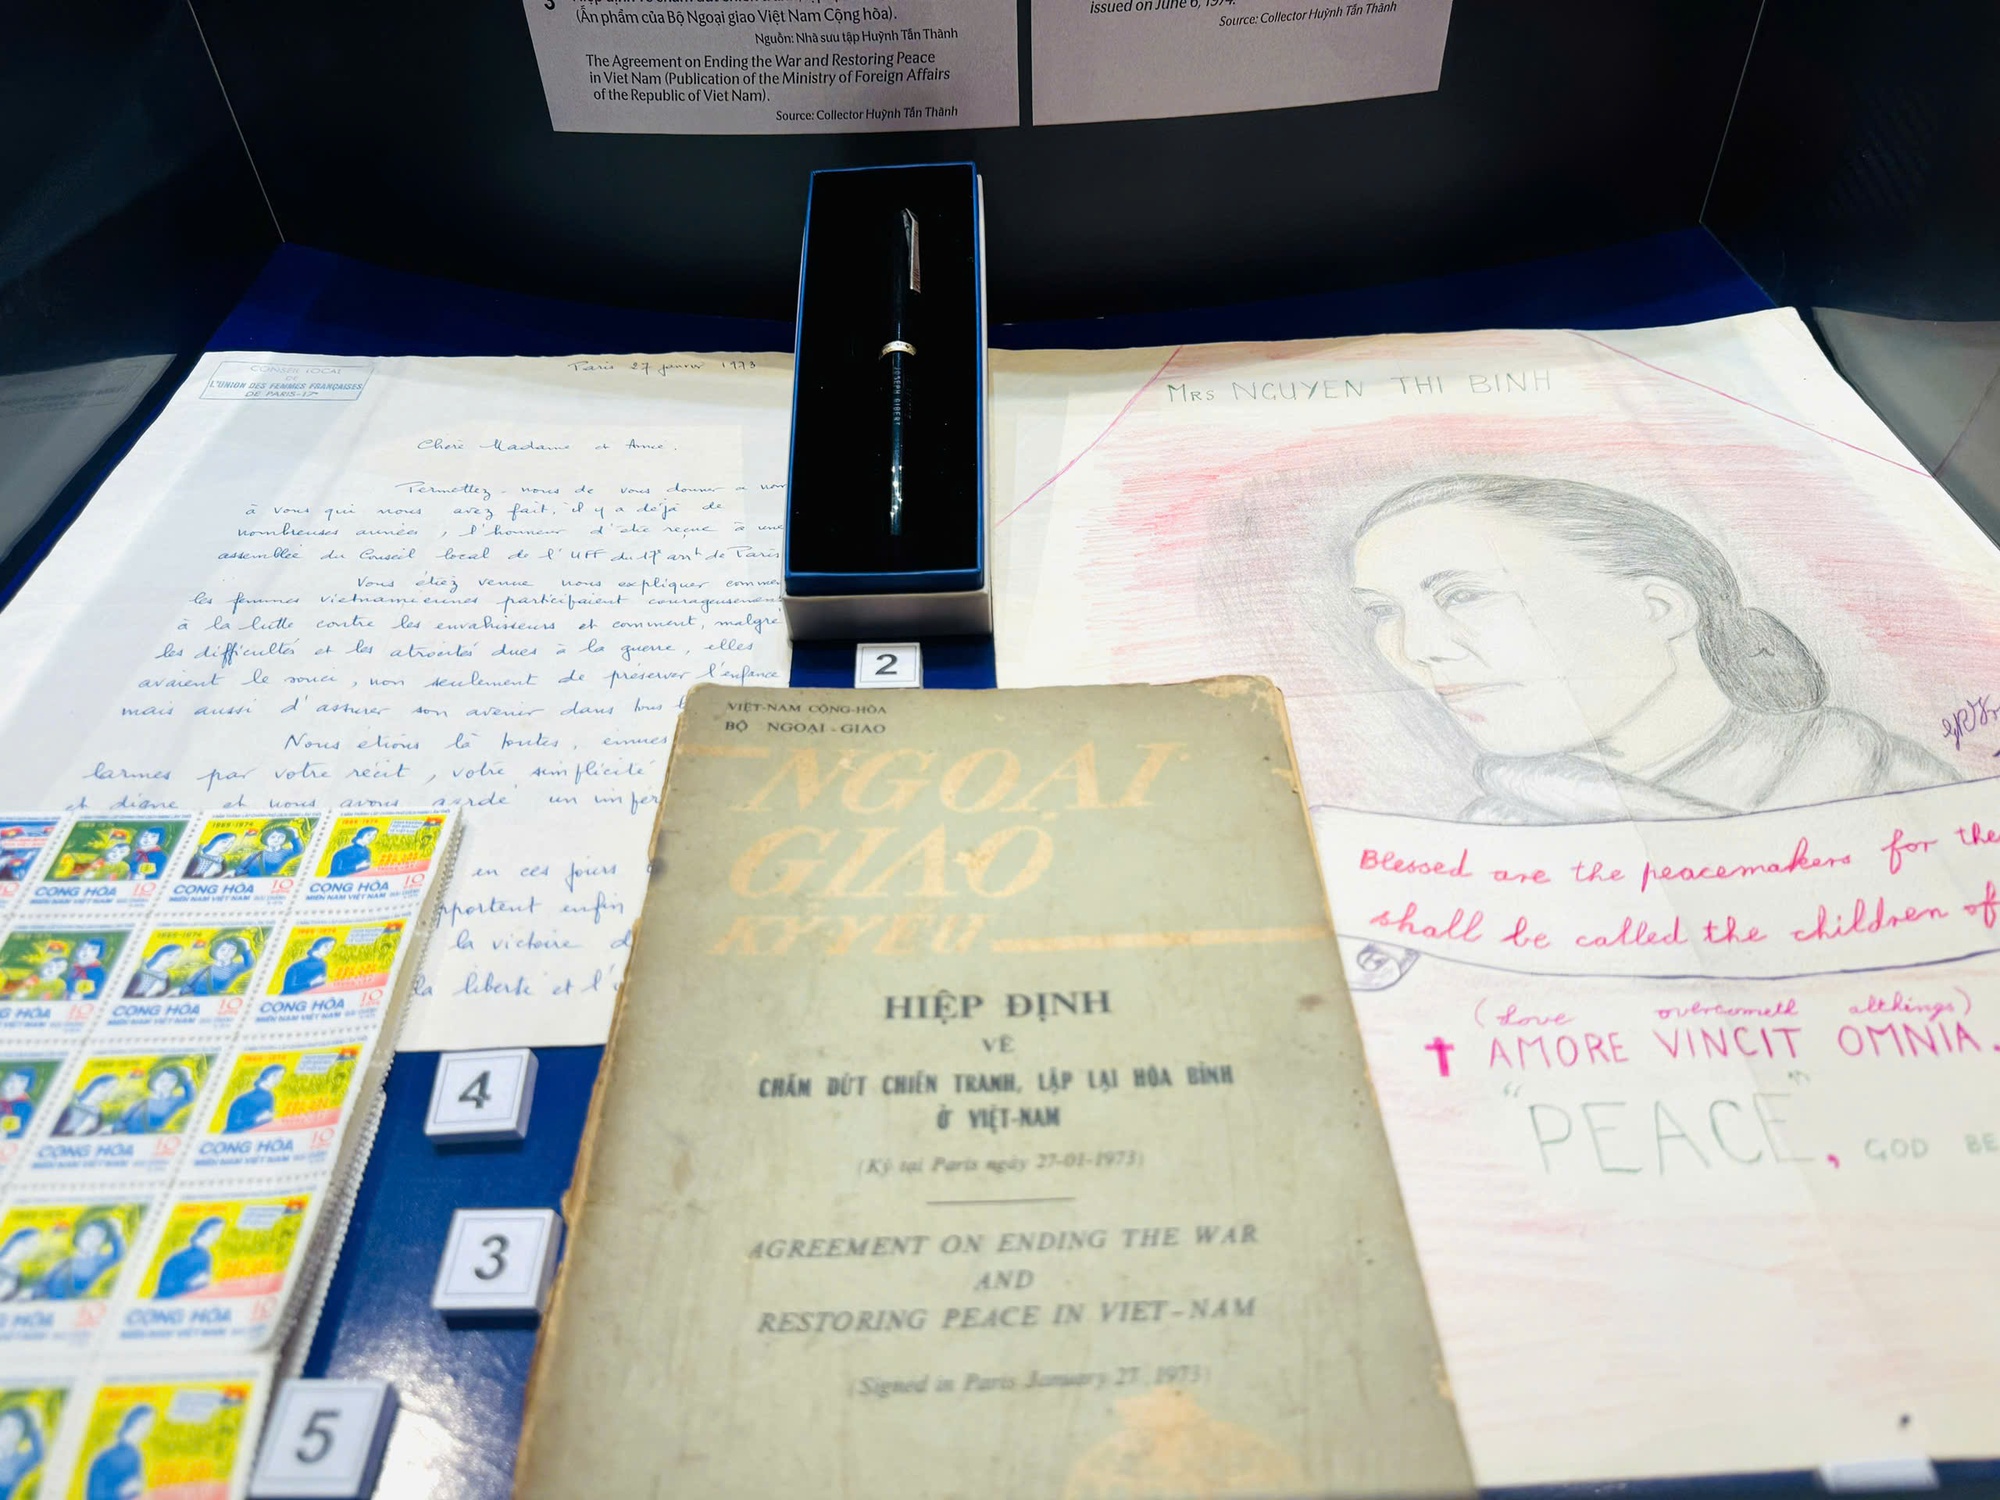 (Ấn phẩm của Bộ Ngoại giao Việt Nam Cộng hòa).
Nguồn: Nhà sưu tập Huỳnh Tấn Thành
The Agreement on Ending the War and Restoring Peace
in Viet Nam (Publication of the Ministry of Foreign Affairs
of the Republic of Viet Nam).
Source: Collector Huỳnh Tấn Thành
issued on June 6, 1974.
Source: Collector Huỳnh Tấn Thành
CONSEIL LOCAL
DE
L'UNION DES FEMMES FRANÇAISES
DE PARIS-17e
Paris 27 janvier 1973
Chère Madame et Amie,
Permettez-nous de vous donner
à vous qui nous avez fait, il y a déjà de
nombreuses années, l'honneur d'être reçue à une
assemblée du Conseil local de l'UFF du 17e arrt de Paris
Vous étiez venue nous expliquer comment
les femmes vietnamiennes participaient courageusement
à la lutte contre les envahisseurs et comment, malgré
les difficultés et les atrocités dues à la guerre, elles
avaient le souci, non seulement de préserver l'enfance
mais aussi d'assurer son avenir dans tous
Nous étions là toutes, émues
larmes par votre récit, votre simplicité
et digne et nous avons gardé un
en ces jours
enfin
la victoire
la liberté et l'
JOSEPH GIBERT
2
MRS NGUYEN THI BINH
Blessed are the peacemakers for the
shall be called the children of
(Love overcometh althings)
AMORE VINCIT OMNIA.
"PEACE", GOD BE
VIỆT-NAM CỘNG-HÒA
BỘ NGOẠI-GIAO
NGOẠI
GIAO
KỶ YẾU
HIỆP ĐỊNH
VỀ
CHẤM DỨT CHIẾN TRANH, LẬP LẠI HÒA BÌNH
Ở VIỆT-NAM
(Ký tại Paris ngày 27-01-1973)
AGREEMENT ON ENDING THE WAR
AND
RESTORING PEACE IN VIET-NAM
(Signed in Paris January 27, 1973)
4
3
5
CONG HÒA 10
MIỀN NAM VIỆT NAM
1969-1974
CONG HÒA 10
MIỀN NAM VIỆT NAM
1969-1974
CONG HÒA 10
MIỀN NAM VIỆT NAM
1969-1974
CONG HÒA 10
MIỀN NAM VIỆT NAM
1969-1974
CONG HÒA 10
MIỀN NAM VIỆT NAM
CONG HÒA 10
MIỀN NAM VIỆT NAM
CONG HÒA 10
MIỀN NAM VIỆT NAM
CONG HÒA 10